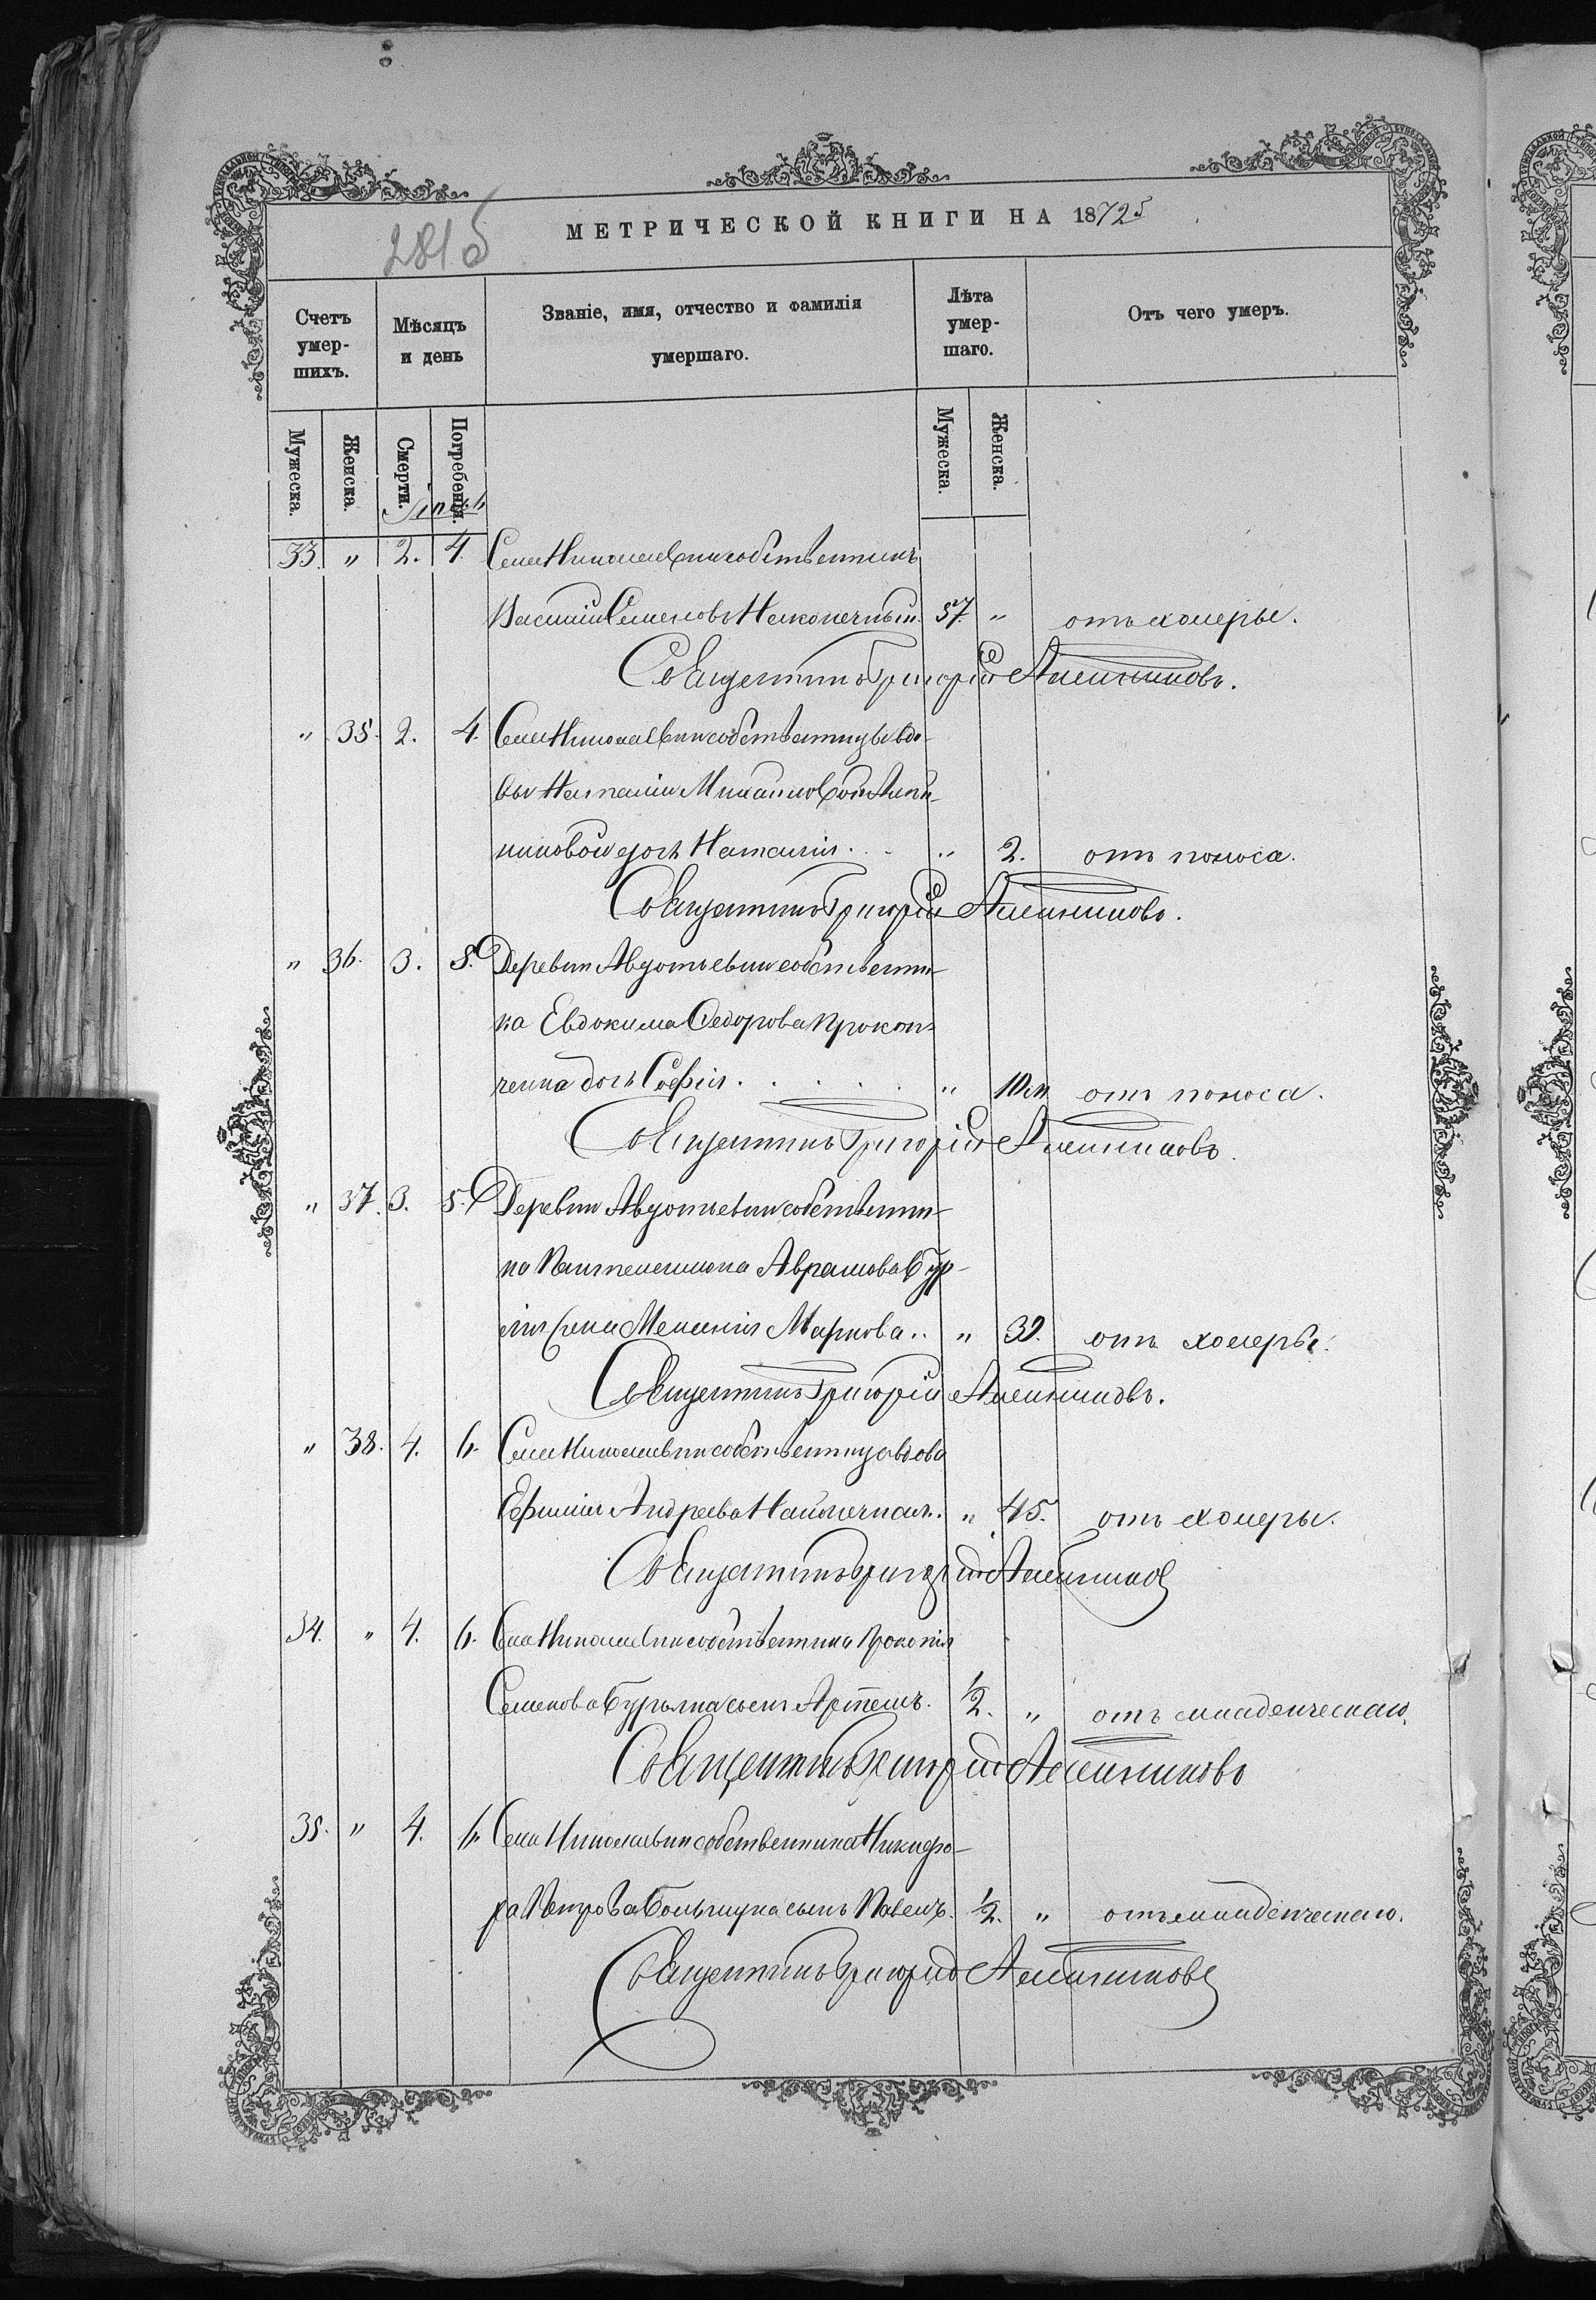 281 б
МЕТРИЧЕСКОЙ КНИГИ НА 1872 г
Счетъ умер-шихъ. Мѣсяцъ и день Званіе, имя, отчество и фамилія умершаго. Лѣта умер-шаго. Отъ чего умеръ.
Мужеска. Женска. Смерти. Погребенія. Мужеска. Женска.
33. " 2. 4. Села Николаевки собственникъ
Василій Семеновъ 57. " отъ холеры.
Священникъ Григорій
" 35. 2. 4. Села Николаевки собственницы вдо-
вы Наталіи Михайловой
дочь Наталія. . " 2. отъ поноса.
Священникъ Григорій
" 36. 3. 5. Деревни Авдотьевки собственни-
ка Евдокима Федорова Прокоп-
ченка дочь Софія. . . . . . " 10 м отъ поноса.
Священникъ Григорій
" 37. 3. 5. Деревни Авдотьевки собственни-
ка Пантелеимона Аврамова Бур-
жена Меланія Маркова. . " 39. отъ холеры.
Священникъ Григорій
" 38. 4. 6. Села Николаевки собственница вдова
Ефимія Андреева " 45. отъ холеры.
Священникъ Григорій
34. " 4. 6. Села Николаевки собственника Прокопія
Семенова сынъ Артемъ. 1/2. " отъ младенческаго.
Священникъ Григорій
35. " 4. 6. Села Николаевки собственника Никифо-
ра Петрова сынъ Павелъ. 1/2. " отъ младенческаго.
Священникъ Григорій